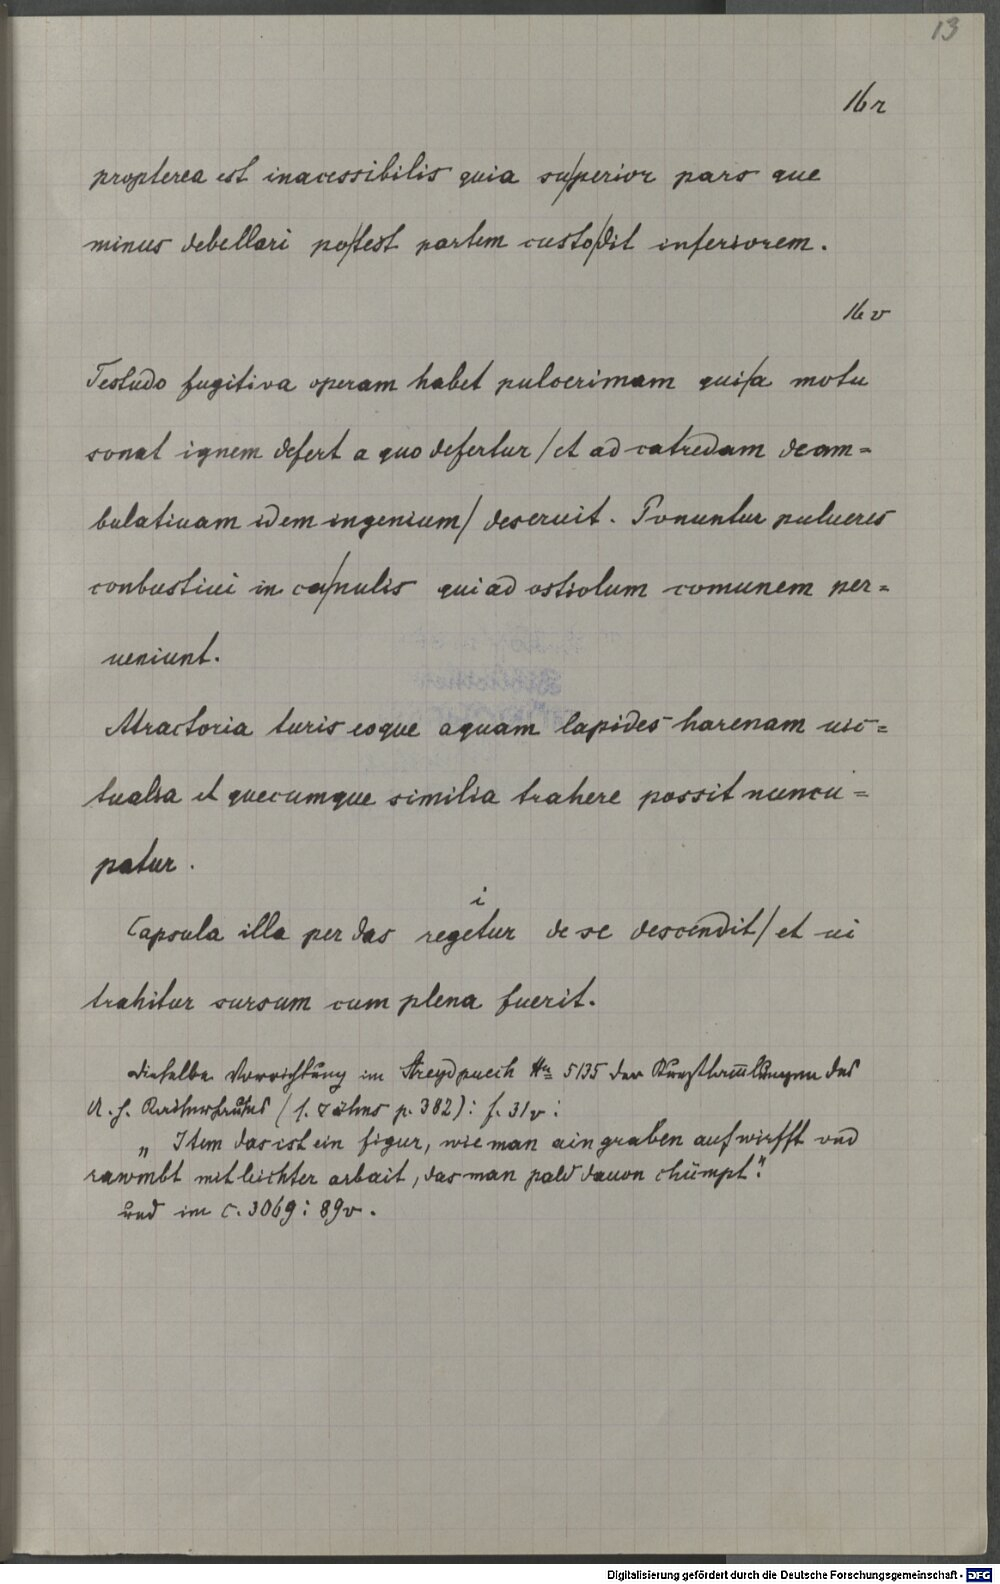 13
16r
propterea est inacessibilis quia su/perior pars que
minus debellari po/test partem custo/dit inferiorem.
16v
Testudo fugitiva operam habet pulcerimam qui/a motu
sonat ignem defert a quo defertur / et ad catredam deam=
bulatiuam idem ingenium / deseruit. Ponuntur pulueres
conbustiui in ca/nulis qui ad ostiolum comunem per=
ueniunt.
Atractoria turis eoque aquam lapides harenam uic=
tualia et quecumque similia trahere possit nuncu=
patur.
i
Capsula illa per das regetur de se descendit / et ui
trahitur sursum cum plena fuerit.
dieselbe Vorrichtung im Streydpuech Nr 5135 der Kunstsammlungen des
A. h. Kaiserhauses (s. Jähns p. 382): f. 31v:
„ Item das ist ein figur, wie man ain graben auf wirfft vnd
rawmbt mit leichter arbait, das man pald dauon chümpt."
und im c. 3069: 89v.
Digitalisierung gefördert durch die Deutsche Forschungsgemeinschaft - DFG